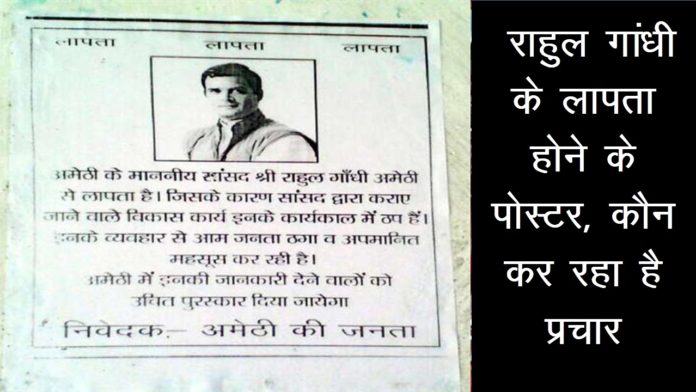 लापता लापता लापता
अमेठी के माननीय सांसद श्री राहुल गाँधी अमेठी
से लापता है। जिसके कारण सांसद द्वारा कराए
जाने वाले विकास कार्य इनके कार्यकाल में ठप हैं।
इनके व्यवहार से आम जनता ठगा व अपमानित
महसूस कर रही है।
अमेठी में इनकी जानकारी देने वालों को
उचित पुरस्कार दिया जायेगा
निवेदक:– अमेठी की जनता
राहुल गांधी
के लापता
होने के
पोस्टर, कौन
कर रहा है
प्रचार